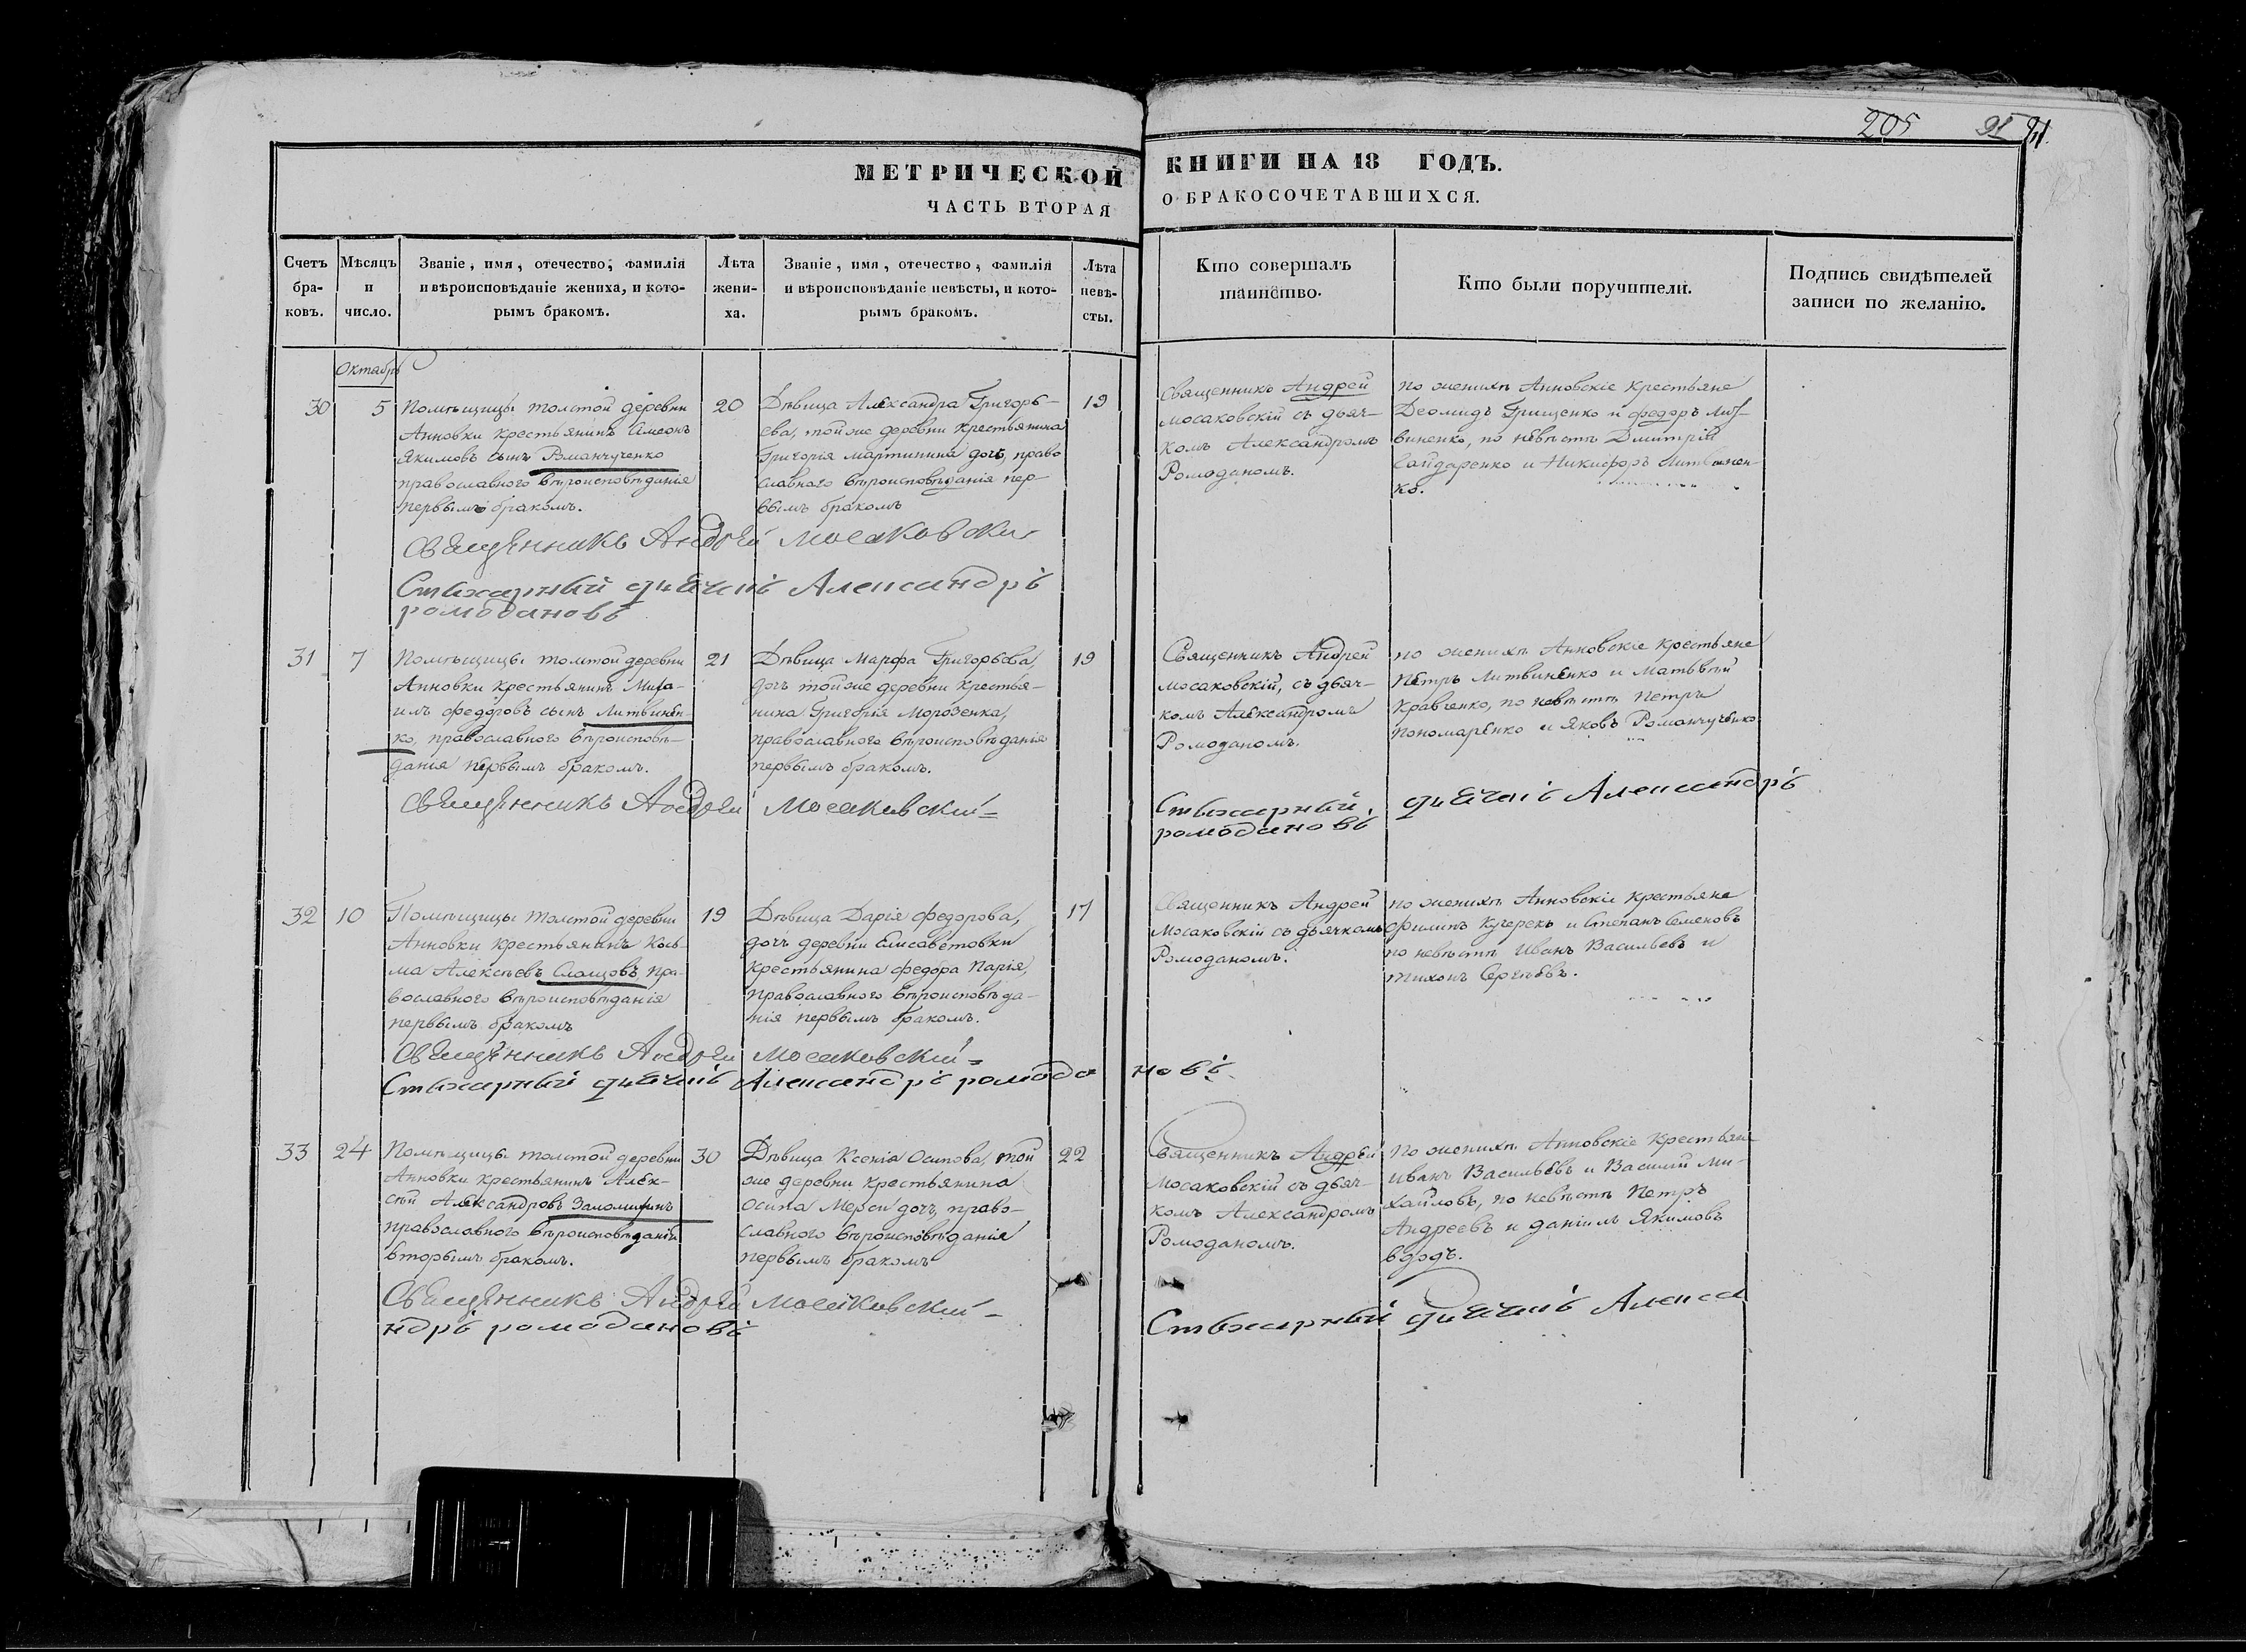 205 91
МЕТРИЧЕСКОЙ КНИГИ НА 18 ГОДЪ.
ЧАСТЬ ВТОРАЯ О БРАКОСОЧЕТАВШИХСЯ.
Счетъ бра-ковъ.
Мѣсяцъ и число.
Званіе, имя, отечество, фамилія
и вѣроисповѣданіе жениха, и кото-
рымъ бракомъ.
Лѣта жени-ха.
Званіе, имя, отечество, фамилія
и вѣроисповѣданіе невѣсты, и кото-
рымъ бракомъ.
Лѣта невѣ-сты.
Кто совершалъ
таинство.
Кто были поручители.
Подпись свидѣтелей
записи по желанію.
Октябрь
30
5
Помѣщицы Толстой деревни
Анновки крестьянинъ Симеонъ
Якимовъ сынъ Романчученко
православнаго вѣроисповѣданія
первымъ бракомъ.
20
Дѣвица Александра Григорь-
ева, той же деревни крестьянина
Григорія Мартинина дочь, право
славнаго вѣроисповѣданія пер-
вымъ бракомъ
19
Священникъ Андрей
Мосаковскій съ дьяч-
комъ Александромъ
Ромоданомъ.
по женихѣ Анновскіе крестьяне
Деомидъ Грищенко и Федоръ Лит-
виненко, по невѣстѣ Дмитрій
Гайдаренко и Никифоръ Литвинен-
ко.
Священникъ Андрей Мосаковски
Стихарный дьячикъ Александръ
ромодановъ
31
7
Помѣщицы Толстой деревни
Анновки крестьянинъ Миха-
илъ Федоровъ сынъ Литвинен-
ко, православнаго вѣроисповѣ-
данія первымъ бракомъ.
21
Дѣвица Марфа Григорьева,
дочь той же деревни крестья-
нина Григорія Морозенка,
православнаго вѣроисповѣданія
первымъ бракомъ.
19
Священникъ Андрей
Мосаковскій, съ дьяч-
комъ Александромъ
Ромоданомъ.
по женихѣ Анновскіе крестьяне
Петръ Литвиненко и Матьвѣй
Кравченко, по невѣстѣ Петръ
Пономаренко и Яковъ Романчученко
Священникъ Андрей Мосаковский
Стихарный дьячикъ Александръ
ромодановъ
32
10
Помѣщицы Толстой деревни
Анновки крестьянинъ Козь-
ма Алексѣевъ пра-
вославнаго вѣроисповѣданія
первымъ бракомъ
19
Дѣвица Дарія Федорова,
дочь деревни Елисаветовки
крестьянина Федора Парія,
православнаго вѣроисповѣда-
нія первымъ бракомъ.
17
Священникъ Андрей
Мосаковскій съ дьячкомъ
Ромоданомъ.
по женихѣ Анновскіе крестьяне
Филипъ Кучерекъ и Степанъ Семеновъ
по невѣстѣ Иванъ Васильевъ и
Тихонъ Сергѣевъ.
Священникъ Андрей Мосаковский
Стихарный дьячикъ Александръ ромодановъ
33
24
Помѣщицы Толстой деревни
Анновки крестьянинъ Алек-
сѣй Александровъ Заломихинъ
православнаго вѣроисповѣданія
вторымъ бракомъ.
30
Дѣвица Ксенія Осипова, той
же деревни крестьянина
Осипа дочь, право-
славнаго вѣроисповѣданія
первымъ бракомъ
22
Священникъ Андрей
Мосаковскій съ дьяч-
комъ Александромъ
Ромоданомъ.
По женихѣ Анновскіе крестьяне
Иванъ Васильевъ и Василій Ми-
хайловъ, по невѣстѣ Петръ
Андреевъ и Даніилъ Якимовъ
Священникъ Андрей Мосаковский
Стихарный дьячикъ Алекса
ндръ ромодановъ